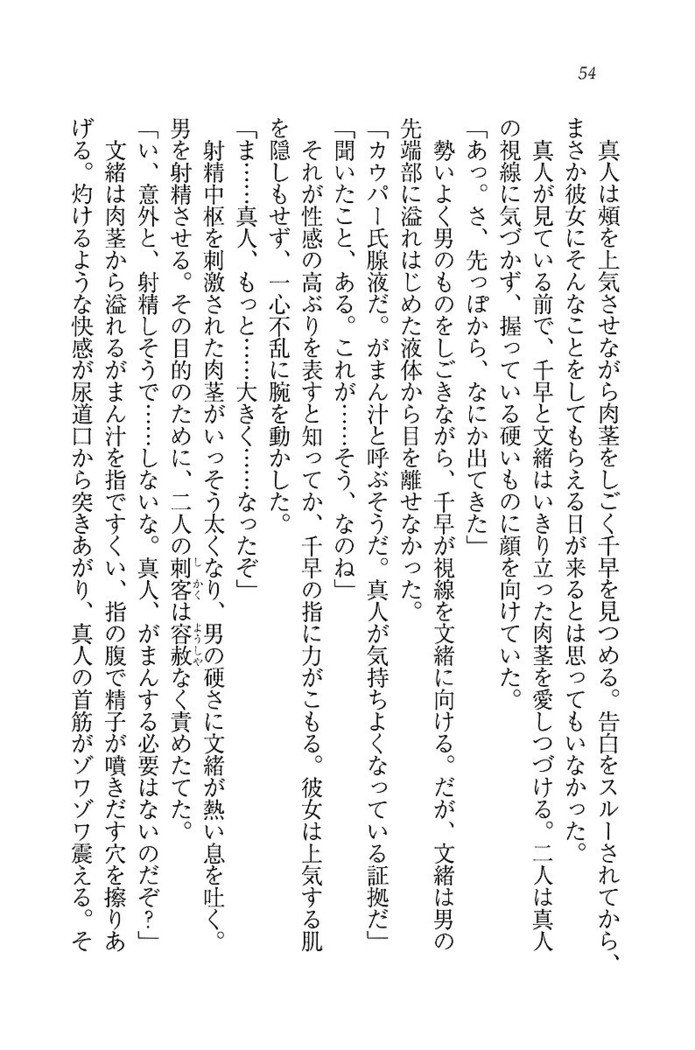 54
真人は頰を上気させながら肉茎をしごく千早を見つめる。告白をスルーされてから、
まさか彼女にそんなことをしてもらえる日が来るとは思ってもいなかった。
真人が見ている前で、千早と文緒はいきり立った肉茎を愛しつづける。二人は真人
の視線に気づかず、握っている硬いものに顔を向けていた。
「あっ。さ、先っぽから、なにか出てきた」
勢いよく男のものをしごきながら、千早が視線を文緒に向ける。だが、文緒は男の
先端部に溢れはじめた液体から目を離せなかった。
「カウパー氏腺液だ。がまん汁と呼ぶそうだ。真人が気持ちよくなっている証拠だ」
「聞いたこと、ある。これが……そう、なのね」
それが性感の高ぶりを表すと知ってか、千早の指に力がこもる。彼女は上気する肌
を隠しもせず、一心不乱に腕を動かした。
「ま……真人、もっと……大きく……なったぞ」
射精中枢を刺激された肉茎がいっそう太くなり、男の硬さに文緒が熱い息を吐く。
男を射精させる。その目的のために、二人の刺客は容赦なく責めたてた。
「い、意外と、射精しそうで……しないな。真人、がまんする必要はないのだぞ？」
文緒は肉茎から溢れるがまん汁を指ですくい、指の腹で精子が噴きだす穴を擦りあ
げる。灼けるような快感が尿道口から突きあがり、真人の首筋がゾワゾワ震える。そ